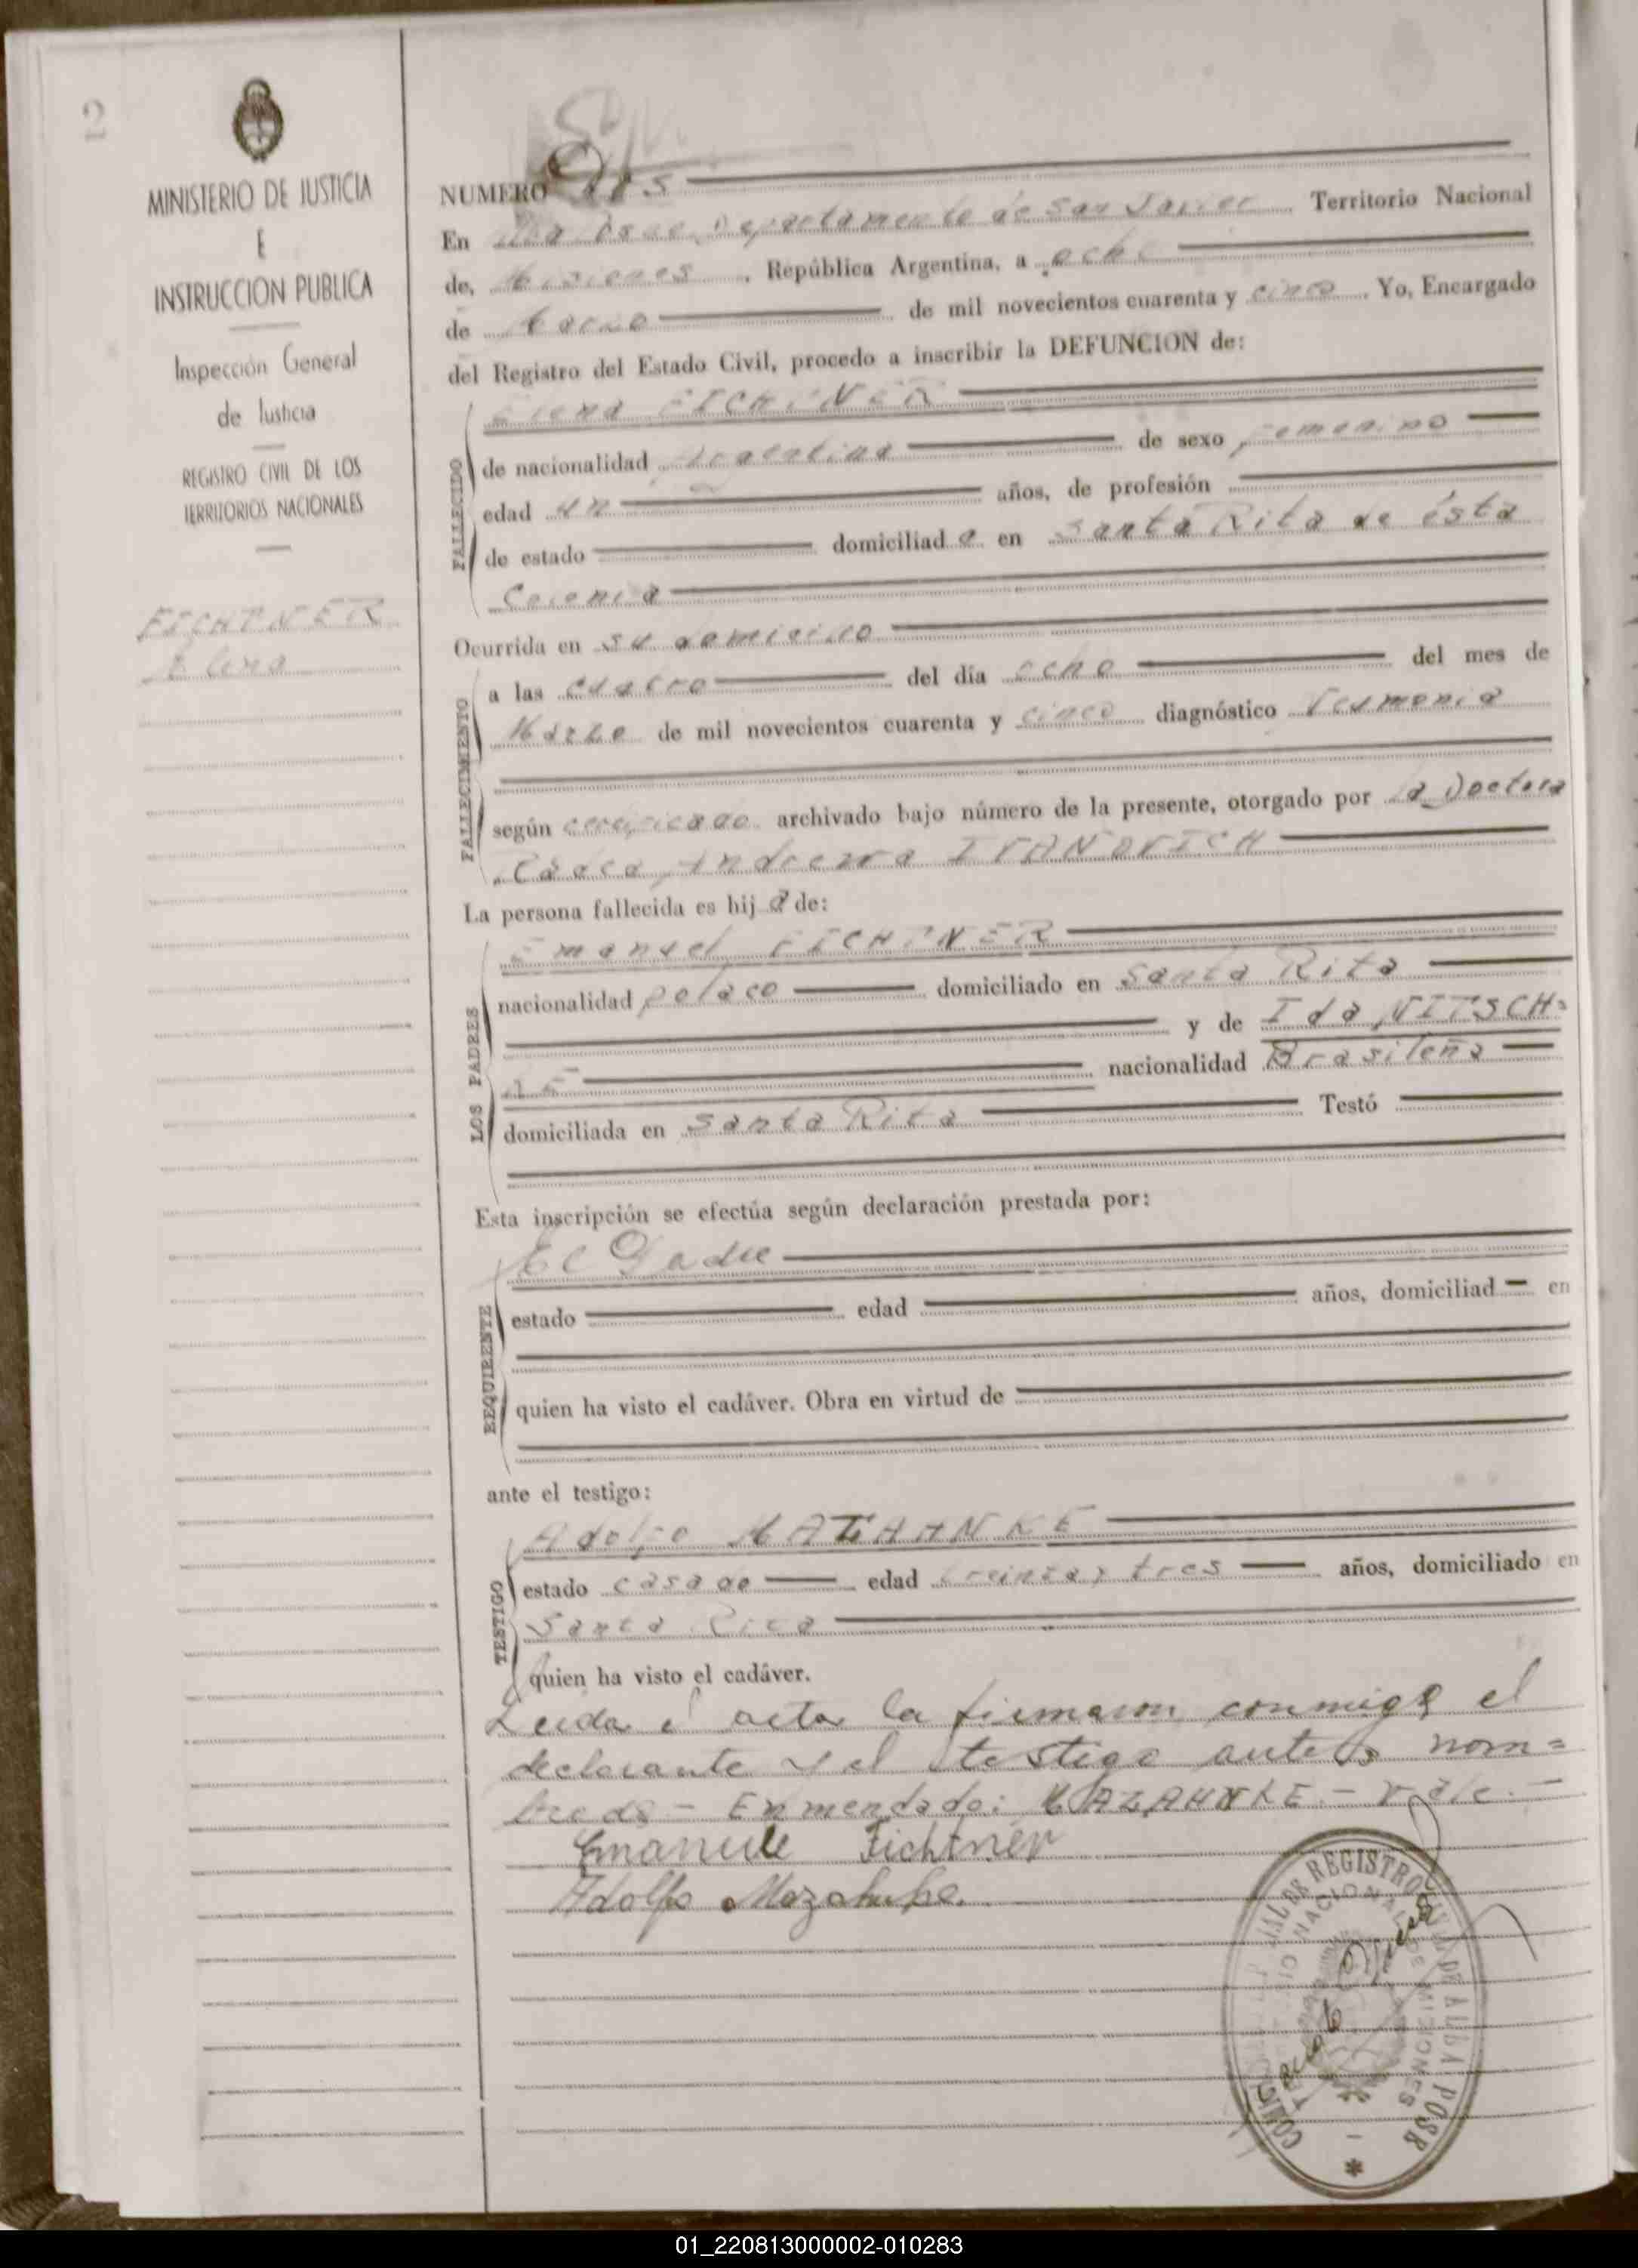 2
MINISTERIO DE JUSTICIA
E
INSTRUCCION PUBLICA
Inspección General
de Justicia
REGISTRO CIVIL DE LOS
TERRITORIOS NACIONALES
FICHTNER
Elena
NUMERO Dos
En Departamento de San Javier Territorio Nacional
de, Misiones, República Argentina, a ocho
de Marzo de mil novecientos cuarenta y cinco. Yo, Encargado
del Registro del Estado Civil, procedo a inscribir la DEFUNCION de:
FALLECIDO
Elena FICHTNER
de nacionalidad Argentina de sexo femenino
edad un años, de profesión
de estado domiciliad a en Santa Rita de ésta
Colonia
Ocurrida en su domicilio
FALLECIMIENTO
a las cuatro del día ocho del mes de
Marzo de mil novecientos cuarenta y cinco diagnóstico Neumonia
según certificado archivado bajo número de la presente, otorgado por la Doctora
IVANOVICH
La persona fallecida es hij a de:
LOS PADRES
Emanuel FICHTNER
nacionalidad polaco domiciliado en Santa Rita
y de Ida NITSCH=
KE nacionalidad Brasileña
domiciliada en Santa Rita Testó
Esta inscripción se efectúa según declaración prestada por:
REQUIRENTE
El Padre
estado edad años, domiciliad en
quien ha visto el cadáver. Obra en virtud de
ante el testigo:
TESTIGO
Adolfo MAZAHNKE
estado casado edad treinta y tres años, domiciliado en
Santa Rita
quien ha visto el cadáver.
Leida el acta la firmaron conmigo el
declarante y el testigo antes nom=
brados - Enmendado: MAZAHNKE - Vale. -
Emanuele Fichtner
Adolfo Mazahnke.
REGISTRO
MISIONES
01_220813000002-010283